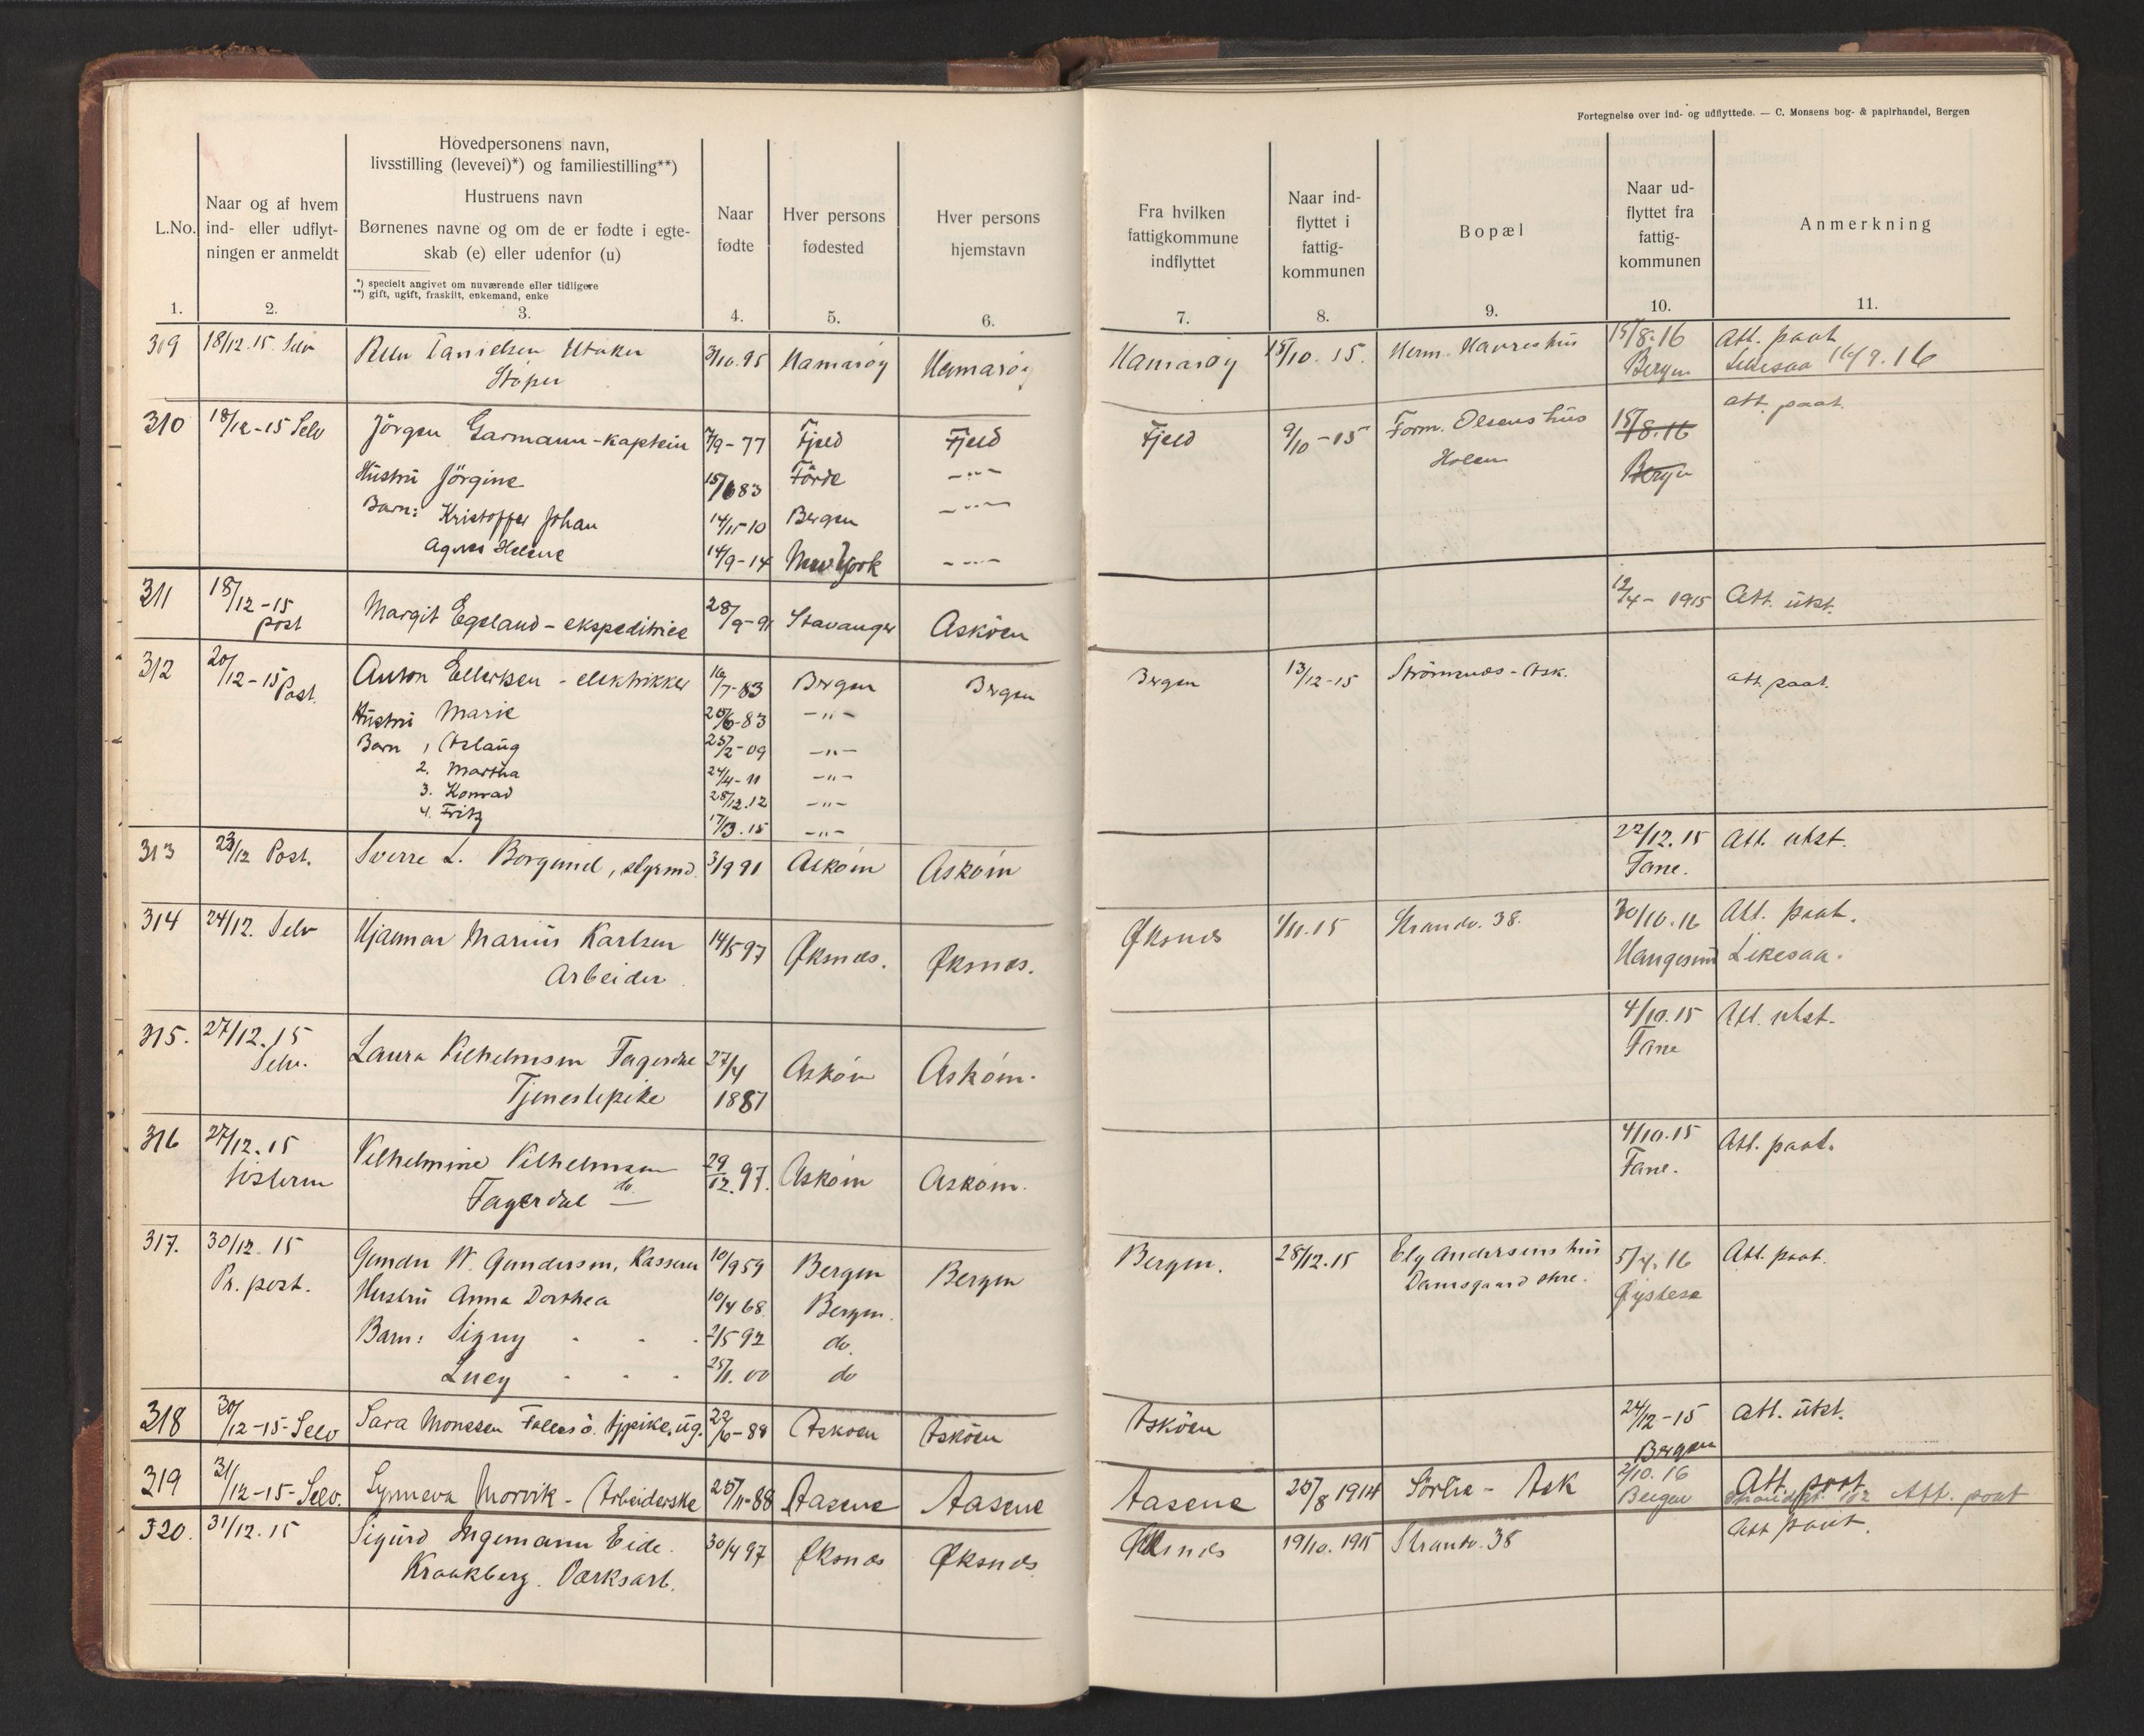 Fortegnelse over ind- og udflyttede. — C. Monsens bog- & papirhandel, Bergen
L.No.
1.
Naar og af hvem
ind- eller udflyt-
ningen er anmeldt
2.
Hovedpersonens navn,
livsstilling (levevei)*) og familiestilling**)
Hustruens navn
Børnenes navne og om de er fødte i egte-
skab (e) eller udenfor (u)
*) specielt angivet om nuværende eller tidligere
**) gift, ugift, fraskilt, enkemand, enke
3.
Naar
fødte
4.
Hver persons
fødested
5.
Hver persons
hjemstavn
6.
Fra hvilken
fattigkommune
indflyttet
7.
Naar ind-
flyttet i
fattig-
kommunen
8.
Bopæl
9.
Naar ud-
flyttet fra
fattig-
kommunen
10.
Anmerkning
11.
309 18/12.15. Selv Danielsen 3/10.95 Hamarøy Hamarøy Hamarøy 15/10. 15. Herm. Havreshus 15/8.16 Att. paat.
Støper Bergen 16/9.16
310 18/12-15 Selv Jörgen Garmann-kaptein 7/9-77 Fjeld Fjeld Fjeld 9/10-15 Form. Olsens hus 15/8.16 att. paat.
Holen Bergen
Hustru Jörgine 15/6 83 Förde -"-
Barn: Kristoffer Johan 14/11-10 Bergen -"-
Agnes Helene 14/9-14 New York -"-
311 18/12-15 Margit Egeland - ekspeditrice 28/9-91 Stavanger Asköen 12/4-1915 Att. utst.
post
312 20/12-15 Post. Anton Ellertsen - elektrikker 16/7-83 Bergen Bergen Bergen 13/12-15 Strömsnes-Ask. att. paat.
Hustru Marie 20/6-83 -"-
Barn 1 Aslaug 25/2-09 -"-
2. Martha 24/4-11 -"-
3. Konrad 28/12.12 -"-
4. Fritz 17/3.15 -"-
313 23/12 Post. Sverre L. Borgund, styrmd. 3/9 91 Askøen Askøen 22/12.15 Att. utst.
Fane.
314 24/12. Selv Hjalmar Marius Karlsen 14/5 97 Øksnes. Øksnes. Øksnes 1/11.15 Strandv. 38. 30/10.16 Att. paat.
Arbeider Haugesund
315. 27/12.15 Laura Vilhelmsen Fagerdal 27/4 Askøen Askøen. 4/10.15 Att. utst.
Selv. Tjenestepike 1881 Fane
316 27/12.15 Vilhelmine Vilhelmsen 29/12.97. Askøen Askøen. 4/10.15 Att. paat.
Søsteren Fagerdal do. Fane.
317. 30/12.15 Gunder W. Gundersen, Kasserer 10/9 59 Bergen Bergen Bergen. 28/12.15 Ely Andersens hus 5/4.16 Att. paat.
Pr. post. Hustru Anna Dorthea 10/4 68 Bergen. Damsgaard Øvre. Øystese
Barn: Signy 2/5 92 do.
Lucy 25/11.00 do
318 30/12-15-Selv Sara Monssen Follesö. tjpike, ug. 22/6-88 Askøen Asköen Asköen 24/12-15 Att. utst.
Bergen
319 31/12-15-Selv. Synneva Morvik - Arbeiderske 25/11-88 Aasene Aasene Aasene 25/8 1914 Sörlie - Ask 2/10.16 Att. paat
Bergen Strandgt. 102 Att. paat
320. 31/12.15 Sigurd Ingemann Eide. 30/4 97 Øksnes Øksnes Øksnes 19/10. 1915 Strandv. 38 Att paat.
Kraakberg. Værksarb.